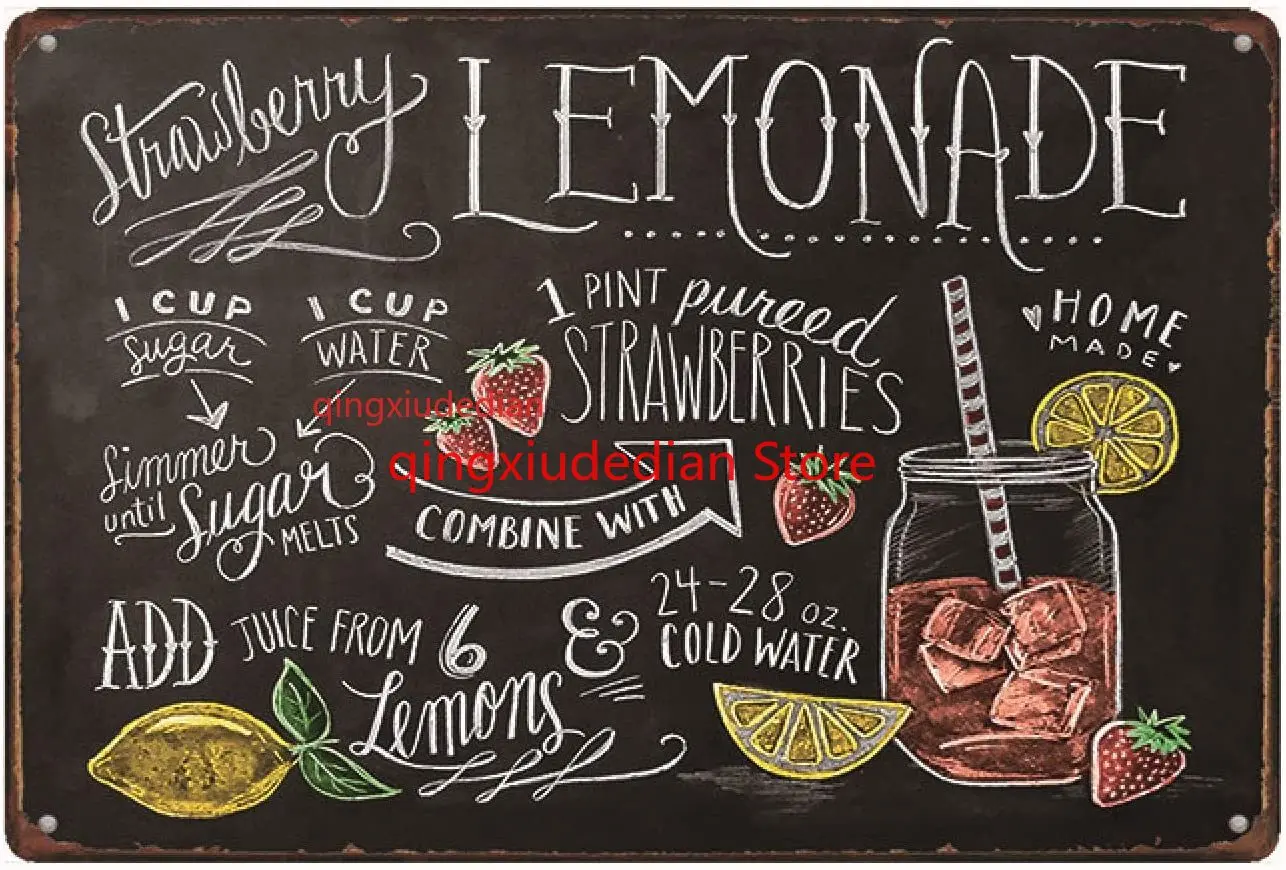 Strawberry LEMONADE
1 CUP
sugar
1 CUP
WATER
Simmer
until Sugar
MELTS
qingxiudedian
qingxiudedian Store
COMBINE WITH
1 PINT pureed
STRAWBERRIES
HOME
MADE
ADD JUICE FROM 6
Lemons
&
24-28 oz.
COLD WATER